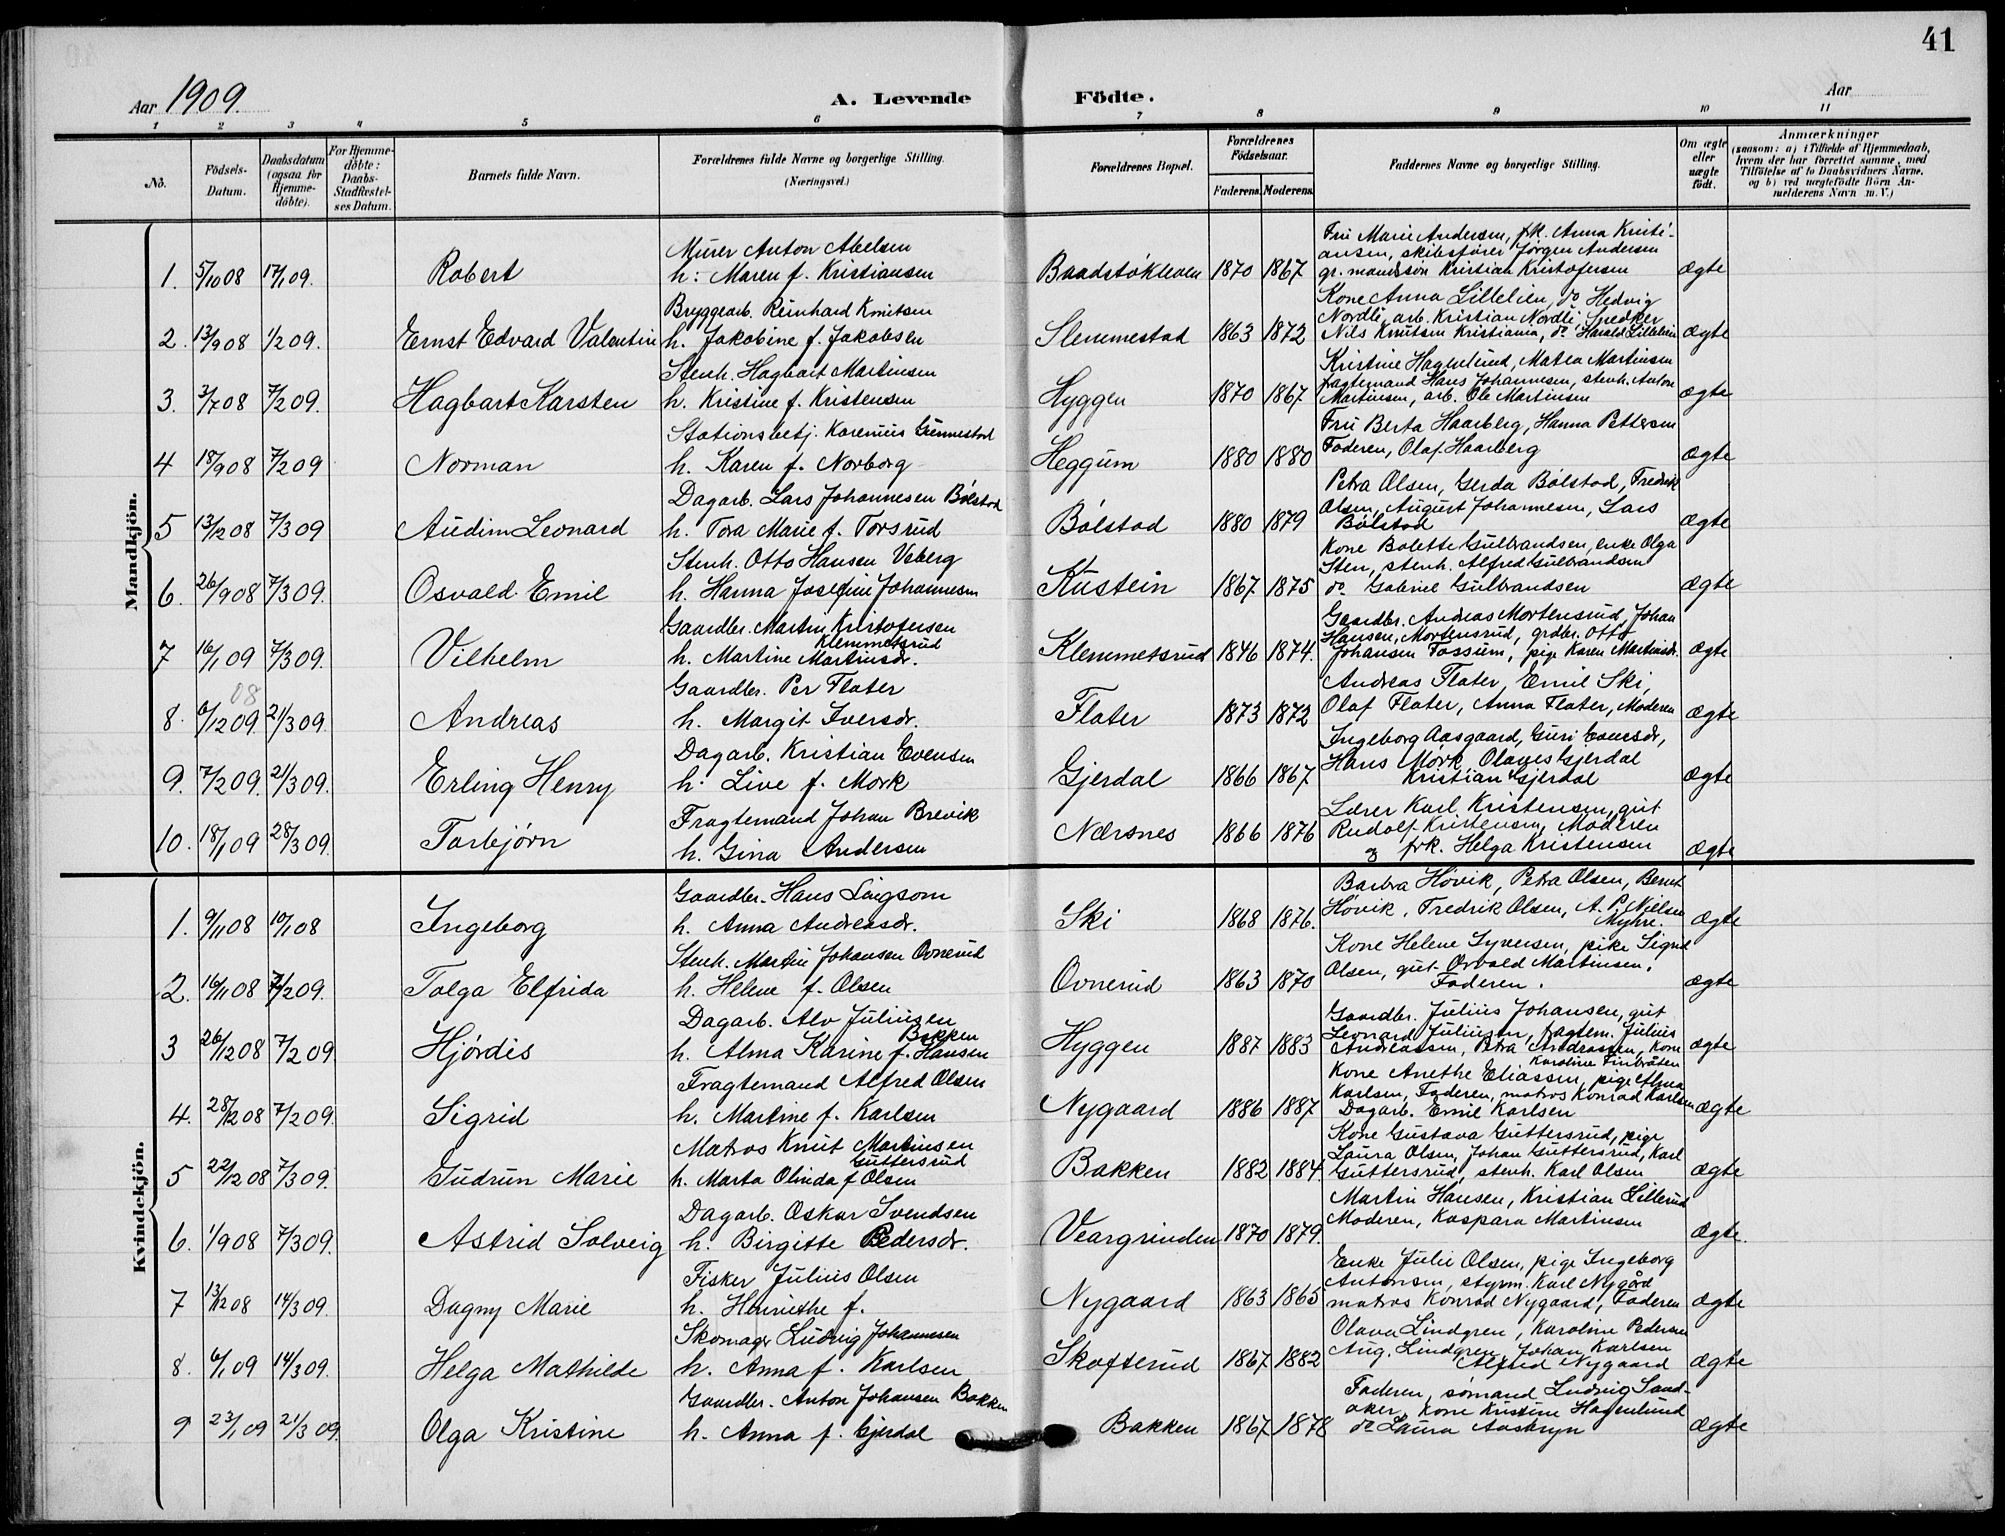 41
Aar 1909.
A. Levende Födte.
Aar
1 2 3 4 5 6 7 8 9 10 11
No.
Födsels-Datum.
Daabsdatum (ogsaa for Hjemme-döbte).
For Hjemme-döbte: Daabs-Stadfæstel-ses Datum.
Barnets fulde Navn.
Forældrenes fulde Navne og borgerlige Stilling. (Næringsvei.)
Forældrenes Bopæl.
Forældrenes Födselsaar.
Faderens. Moderens.
Faddernes Navne og borgerlige Stilling.
Om ægte eller uægte födt.
Anmærkninger
(saasom: a) i Tilfælde af Hjemmedaab, hvem der har forrettet samme, med Tilföielse af to Daabsvidners Navne, og b) ved uægtefödte Börn An-melderens Navn m. V.)
Mandkjön.
Murer Anton Abelsen
Fru Marie Andersen, frk. Anna Kristi-
ansen, skibsfører Jørgen Andersen
1. 5/10 08 17/1 09. Robert h: Maren f. Kristiansen Baadstøkleven 1870 1867 gr.mandssøn Kristian Kristofersen Ægte
Bryggearb. Reinhard Knutsen
Kone Anna Lillelien, do Hedvig
Nordli, arb. Kristian Nordli, Snedker
2. 13/9 08 1/2 09. Ernst Edvard Valentin h. Jakobine f. Jakobsen Slemmestad 1863 1872 Nils Knutsen Kristiania, do Harald Lillelien Ægte
Stenh. Hagbart Martinsen
Kristine Hagnelund, Matea Martinsen
fragtemand Hans Johannesen, stenh. Anton
3. 3/7 08 7/2 09. Hagbart Karsten h. Kristine f. Kristensen Hyggen 1870 1867 Martinsen, arb. Ole Martinsen Ægte
Stationsbetj. Karenius Gunnestad
Fru Berta Haarberg, Hanna Pettersen
4 18/9 08 7/2 09 Norman h. Karen f. Norborg Heggum 1880 1880 Faderen, Olaf Haarberg Ægte
Dagarb. Lars Johannesen Bølstad
Petra Olsen, Gerda Bølstad, Fredrik
Olsen, August Johannesen, Lars
5 13/12 08 7/3 09 Audim Leonard h. Tora Marie f. Torsrud Bølstad 1880 1879 Bølstad Ægte
Stenh. Otto Hansen Veberg
Kone Bolette Gulbrandsen, enke Olga
Sten, stenh. Alfred Gulbrandsen
6. 26/9 08 7/3 09. Osvald Emil h. Hanna Josefine Johannesen Kustein 1867 1875 do Gabriel Gulbrandsen Ægte
Gaardbr. Martin Kristofersen
Klemmetsrud
Gaardbr. Andreas Mortensrud, Johan
Hansen, Mortensrud, grdbr. Otto
7 16/1 09 7/3 09. Vilhelm h. Martine Martinsdr. Klemmetsrud 1846 1874. Johansen Fossum, pige Karen Martinsdr. Ægte
Gaardbr. Per Flater
Andreas Flater, Emil Ski,
08
8. 6/12 09 21/3 09. Andreas h. Margit Iversdr. Flater 1873 1872 Olaf Flater, Anna Flater, Moderen Ægte
Dagarb. Kristian Evensen
Ingeborg Aasgaard, Guri Evensdr,
Hans Mørk, Olaves Gjerdal
9. 7/2 09. 21/3 09. Erling Henry h. Live f. Mork Gjerdal 1866 1867 Kristian Gjerdal Ægte
Fragtemand Johan Brevik
Lærer Karl Kristensen, gut
Rudolf Kristensen, Moderen
10. 18/1 09 28/3 09. Torbjørn h. Gina Andersen Nærsnes 1866 1876 og frk. Helga Kristensen Ægte
Kvindekjön.
Gaardbr. Hans Lingsom
Barbra Høvik, Petra Olsen, Bernt
Høvik, Fredrik Olsen, A. P. Nielsen
1. 9/11 08 10/1 08 Ingeborg h. Anna Andreasdr. Ski 1868 1876. Myhre. Ægte
Stenh. Martin Johansen Ovnerud
Kone Helene Syversen, pike Sigrid
Olsen, gut Osvald Martinsen,
2. 16/11 08 7/2 09. Tolga Elfrida h. Helene f. Olsen Ovnerud 1863 1870 Faderen. Ægte
Dagarb. Alv Juliusen
Bakken
Gaardbr. Julius Johansen, gut
Leonard Juliusen, fragtem. Julius
3 26/12 08 7/2 09 Hjørdis h. Alma Karine f. Hansen Hyggen 1887 1883 Andreassen, Petra Andreassen, Kone Ægte
Karoline Finbråten
Fragtemand Alfred Olsen
Kone Anethe Eliassen, pige Alma
Karlsen, Faderen, matros Konrad Karlsen
4. 28/12 08 7/2 09. Sigrid h. Martine f. Karlsen Nygaard 1886 1887 Dagarb. Emil Karlsen Ægte
Matros Knut Martinsen
Guttersrud
Kone Gustava Guttersrud, pige
Laura Olsen, Johan Guttersrud, Karl
5 22/12 08 7/3 09. Gudrun Marie h. Marta Olinda f Olsen Bakken 1882 1884. Guttersrud, stenh. Karl Olsen Ægte
Dagarb. Oskar Svendsen
Martin Hansen, Kristian Hillerud
6. 1/9 08 7/3 09. Astrid Solveig h. Birgitte Pedersdr. Veargrinden 1870 1879. Moderen, Kaspara Martinsen Ægte.
Fisker Julius Olsen
Enke Julie Olsen, pige Ingeborg
Antonsen, styrm. Karl Nygård
7 13/12 08 14/3 09. Dagny Marie h. Henriethe f. Nygaard 1863 1865 matros Konrad Nygaard, Faderen Ægte
Skomager Ludvig Johannesen
Olava Lindgren, Karoline Pedersen
Aug. Lindgren, Johan Karlsen
8. 6/1 09 14/3 09. Helga Mathilde h. Anna f. Karlsen Skofterud 1867 1882 Alfred Nygaard Ægte
Gaardbr. Anton Johansen Bakken
Faderen, sømand Ludvig Sand-
aker, Kone Kristine Hagnelund
9 23/1 09 21/3 09. Olga Kristine h. Anna f. Gjerdal Bakken 1867 1878 do Laura Aasbryn Ægte